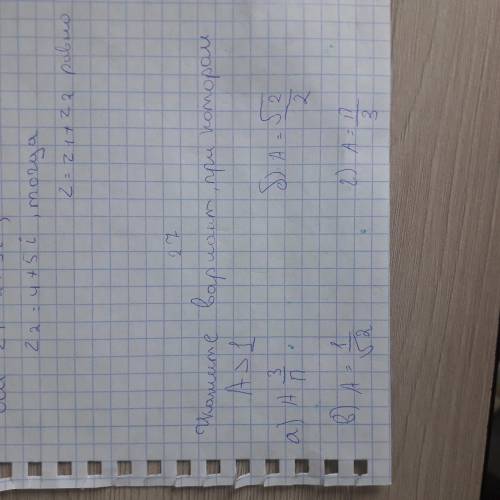 z2 = 4+5i, тогда
z = z1+z2 равно
27
Укажите вариант, при котором
A > 1
а) A 3/π б) A = √2/2
в) A = 1/√2 г) A = π/3